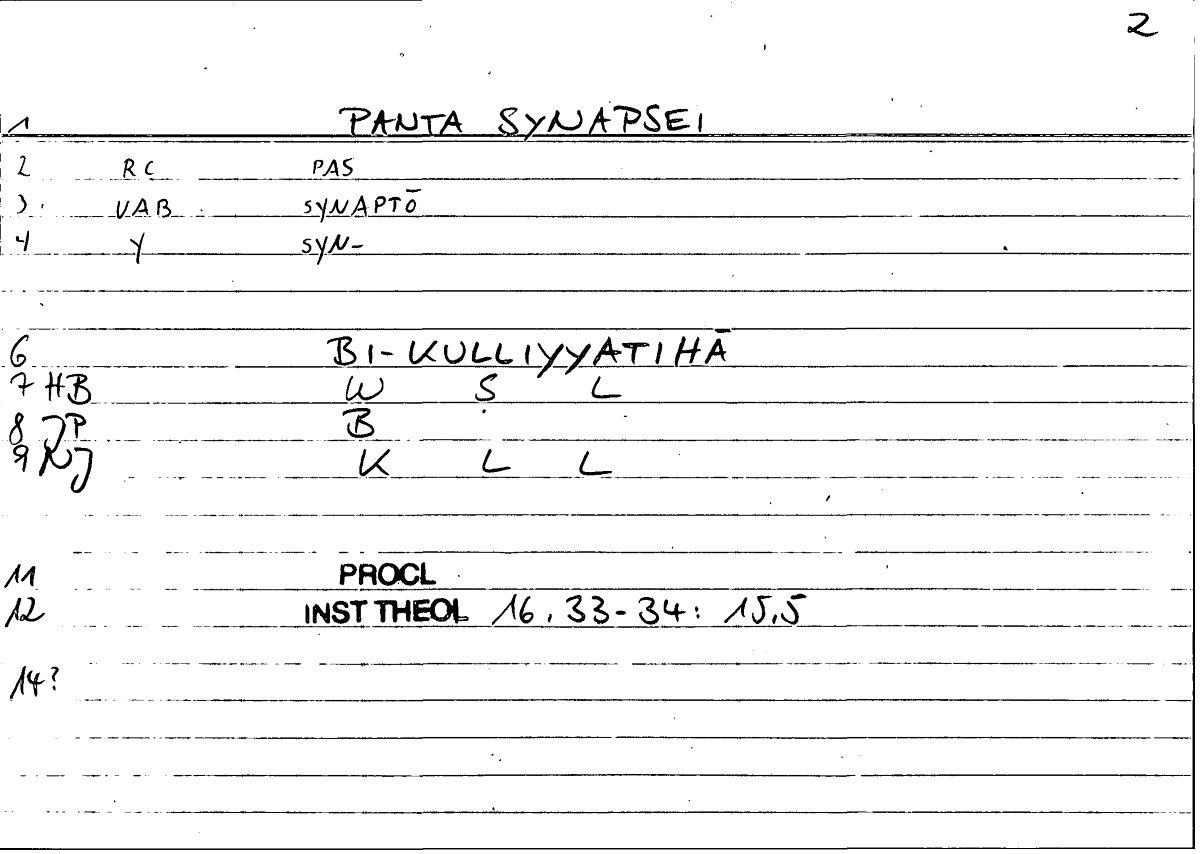 2
1 PANTA SYNAPSEI
2 RC PAS
3. VAB SYNAPTŌ
4 Y SYN-
6 BI-KULLIYYATIHĀ
7 HB W Ṣ L
8 JP B
9 NJ K L L
11 PROCL
12 INST THEOL 16.33-34: 15.5
14?